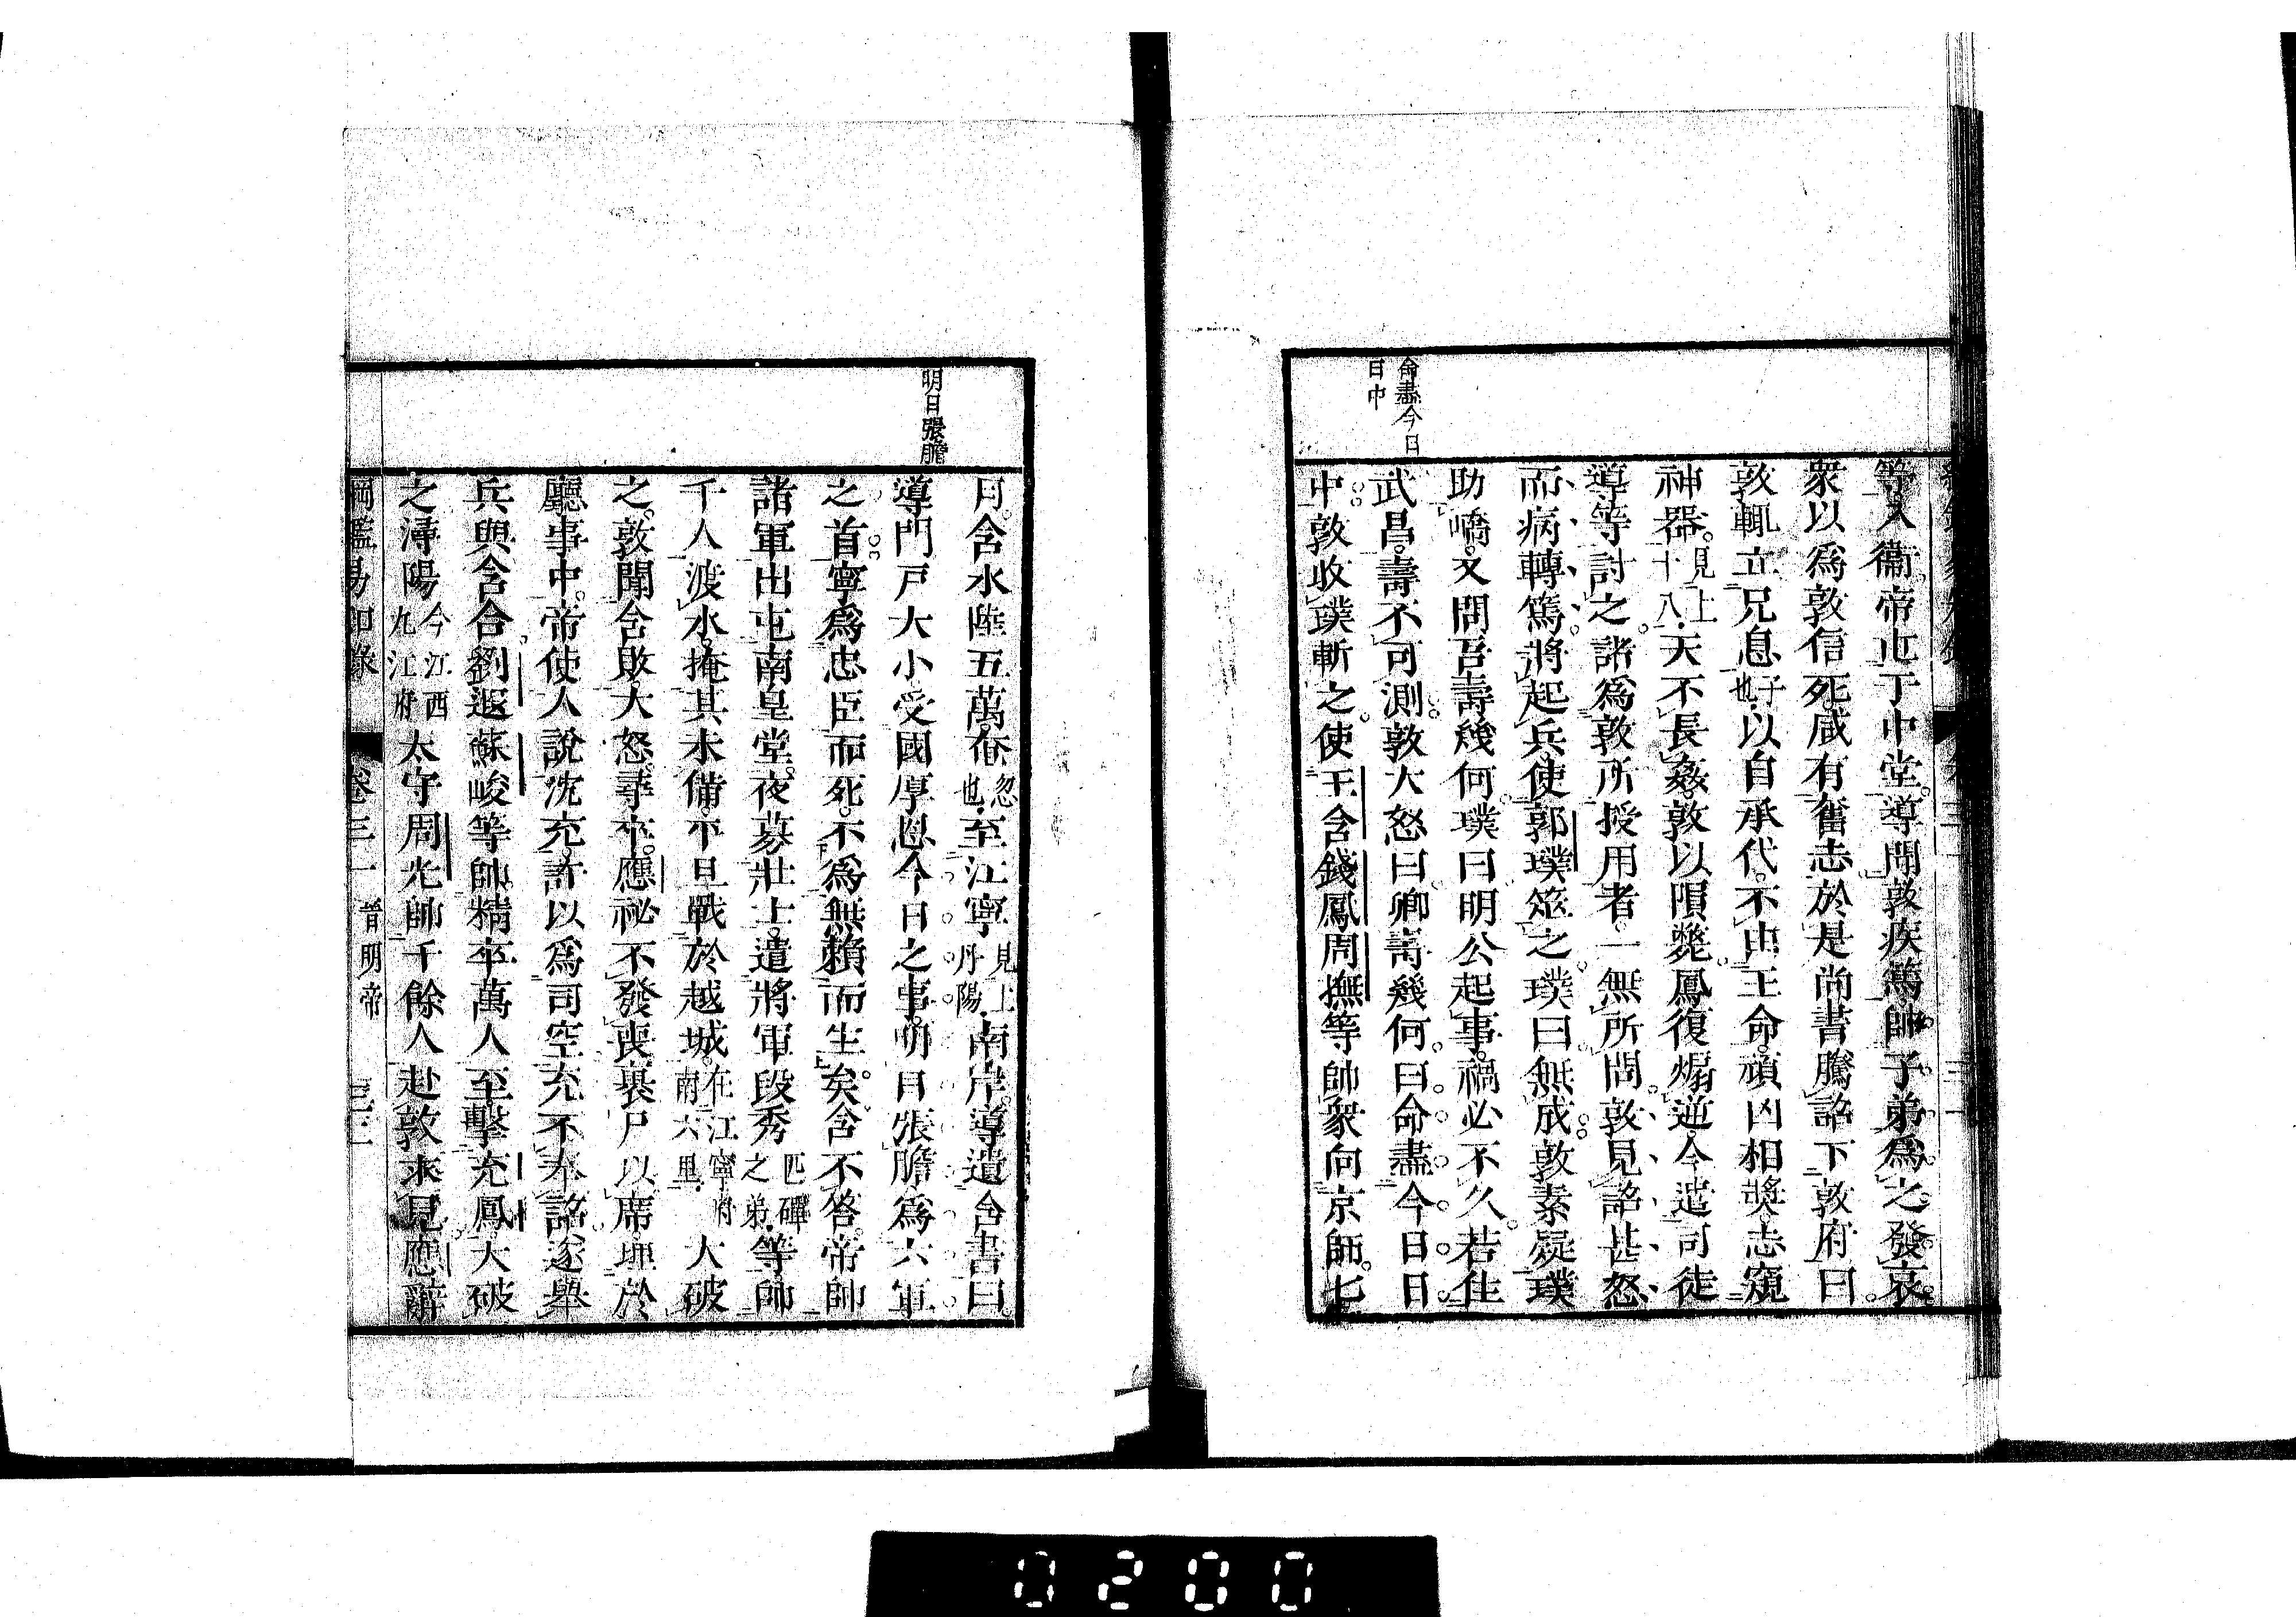 等入衞帝屯于中堂導聞敦疾篤帥子弟爲之發哀
衆以爲敦信死咸有奮志於是尚書騰詔下敦府曰
敦輒立兄息子也以自承代不由王命頑凶相奬志窺
神器見上十八天不長姦敦以隕斃鳳復煽逆今遣司徒
導等討之諸爲敦所授用者一無所問敦見詔甚怒
而病轉篤將起兵使郭璞筮之璞曰無成敦素疑璞
助嶠又問吾壽幾何璞曰明公起事禍必不久若住
武昌壽不可測敦大怒曰卿壽幾何曰命盡今日日
中敦收璞斬之使王含錢鳳周撫等帥衆向京師七
命盡今日
日中
月含水陸五萬奄忽也至江寧見上丹陽南岸導遺含書曰
導門戸大小受國厚恩今日之事明目張膽爲六軍
之首寧爲忠臣而死不爲無賴而生矣含不答帝帥
諸軍出屯南皇堂夜募壯士遣將軍段秀匹磾之弟等帥
千人渡水掩其未備平旦戰於越城在江寧府南六里大破
之敦聞含敗大怒尋卒應祕不發喪裹尸以席埋於
廳事中帝使人說沈充許以爲司空充不奉詔遂舉
兵與含合劉遐蘇峻等帥精卒萬人至擊充鳳大破
之潯陽今江西九江府太守周光帥千餘人赴敦來見應辭
明日張膽
綱鑑易知錄 卷三一 晉明帝
0200